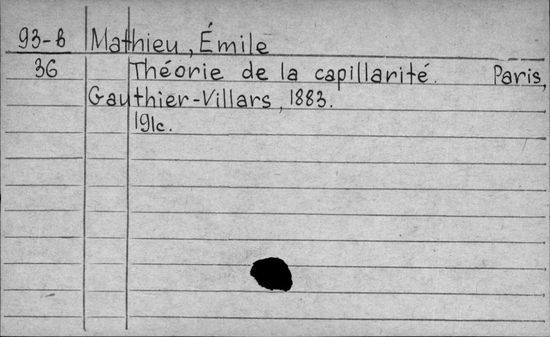 93-в Mathieu, Émile
36 Théorie de la capillarité. Paris,
Gauthier-Villars, 1883.
191c.